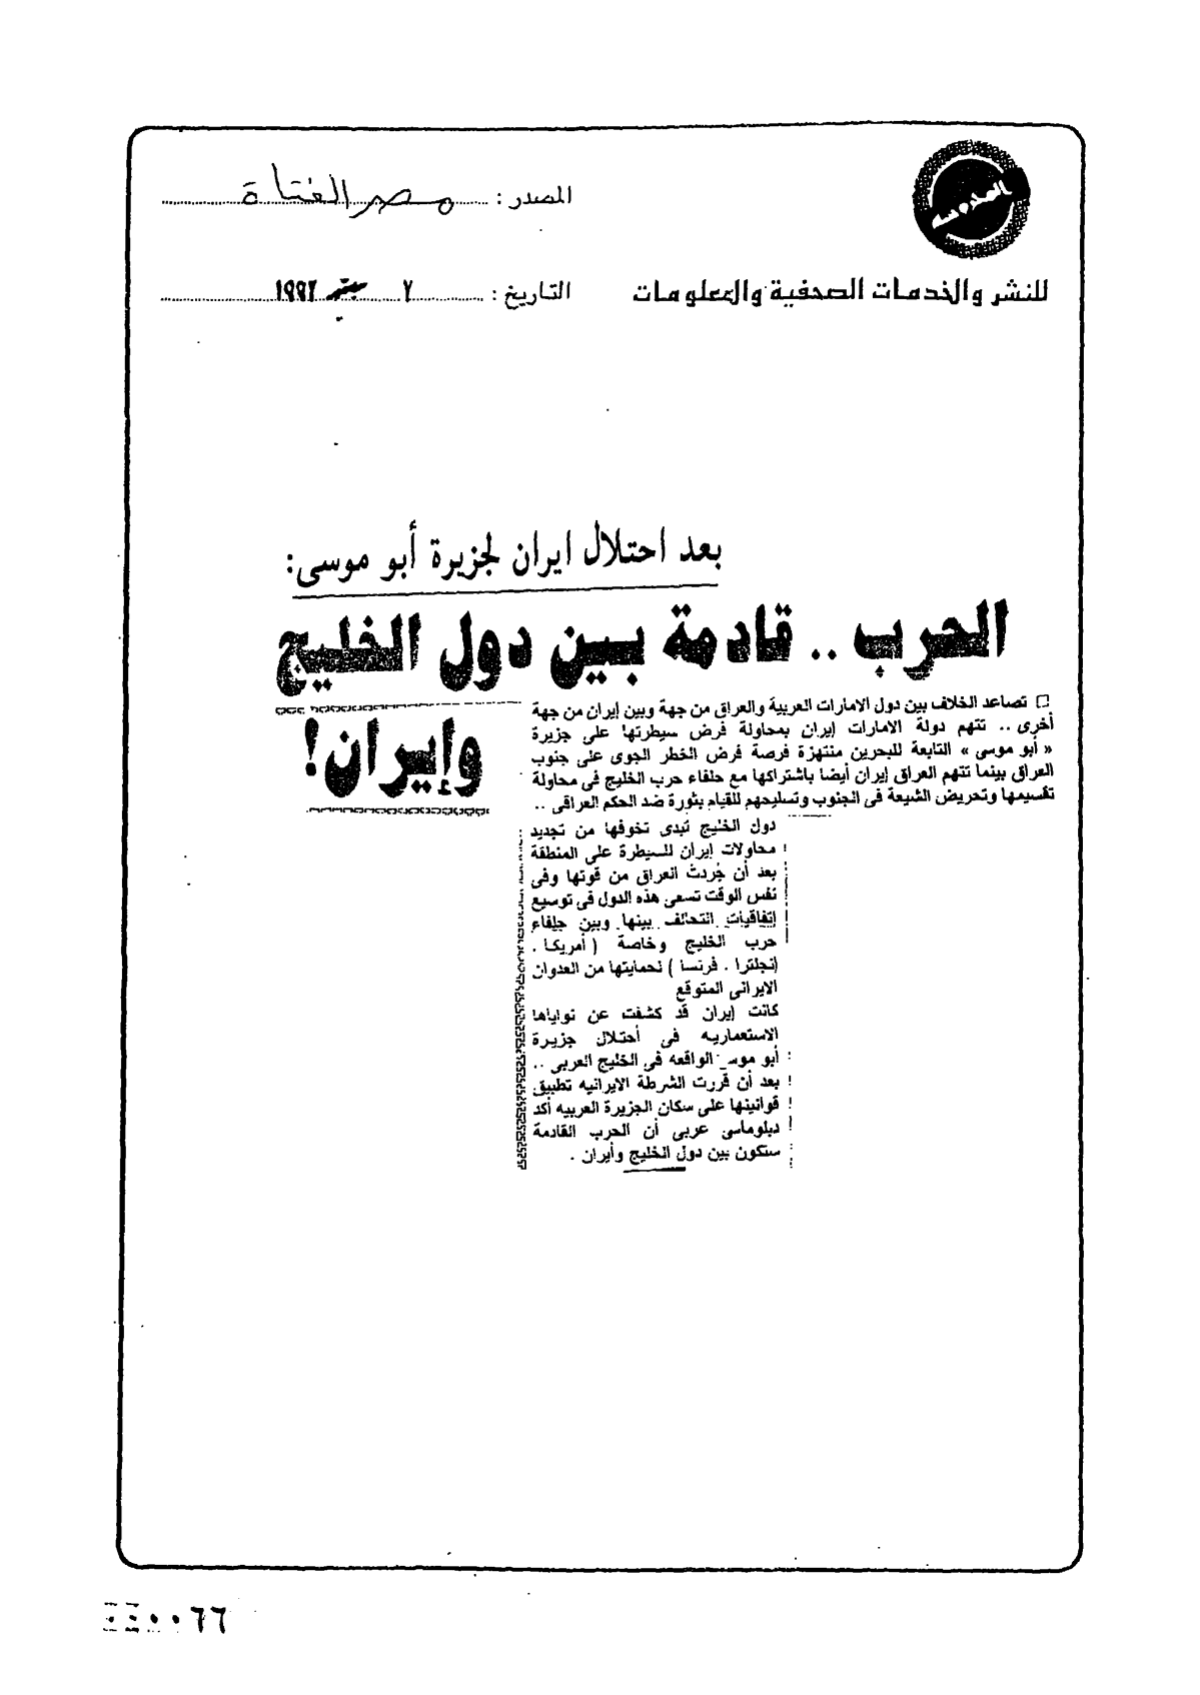 المصدر : مصر الفتاة
للنشر والخدمات الصحفية والمعلومات
التاريخ : ٧ سبتمبر ١٩٩٢
بعد احتلال ايران لجزيرة أبو موسى :
الحرب .. قادمة بين دول الخليج
وإيران !
تصاعد الخلاف بين دول الامارات العربية والعراق من جهة وبين إيران من جهة
أخرى .. تتهم دولة الامارات إيران بمحاولة فرض سيطرتها على جزيرة
« أبو موسى » التابعة للبحرين منتهزة فرصة فرض الخطر الجوى على جنوب
العراق بينما تتهم العراق إيران أيضا باشتراكها مع حلفاء حرب الخليج فى محاولة
تقسيمها وتحريض الشيعة فى الجنوب وتسليحهم للقيام بثورة ضد الحكم العراقى ..
دول الخليج تبدى تخوفها من تجديد
محاولات إيران للسيطرة على المنطقة
بعد أن جُردت العراق من قوتها وفى
نفس الوقت تسعى هذه الدول فى توسيع
إتفاقيات التحالف بينها وبين حلفاء
حرب الخليج وخاصة ( أمريكا .
إنجلترا . فرنسا ) لحمايتها من العدوان
الايرانى المتوقع
كانت إيران قد كشفت عن نواياها
الاستعماريه فى أحتلال جزيرة
أبو موسى الواقعه فى الخليج العربى ..
بعد أن قررت الشرطة الايرانيه تطبيق
قوانينها على سكان الجزيرة العربيه أكد
دبلوماسى عربى أن الحرب القادمة
ستكون بين دول الخليج وأيران .